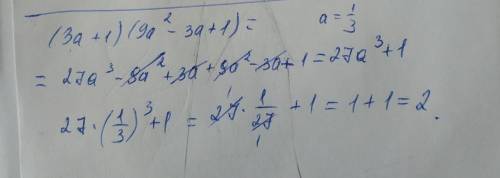 (3a + 1)(9a² - 3a + 1) = a = 1/3
= 27a³ - 9a² + 3a + 9a² - 3a + 1 = 27a³ + 1
27 · (1/3)³ + 1 = 27 · 1/27 + 1 = 1 + 1 = 2.